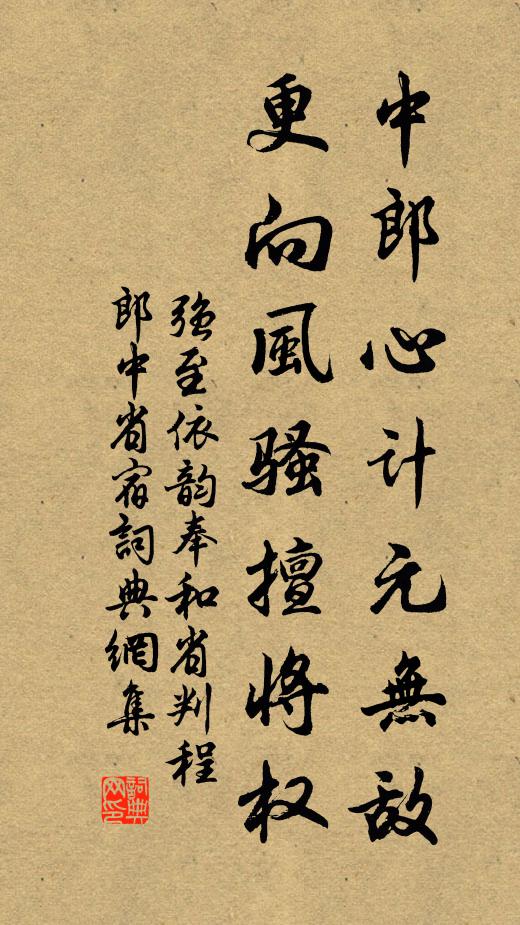 中郎心计元無敌
更向風骚擅将权
强至依韵奉和省判程
郎中省宿詞典網集
詞典网印